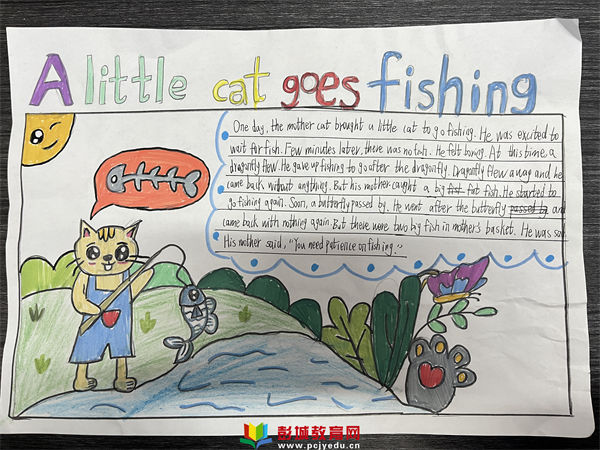 A little cat goes fishing
One day, the mother cat brought a little cat to go fishing. He was excited to
wait for fish. Few minutes later, there was no fish. He felt boring. At this time, a
dragonfly flew. He gave up fishing to go after the dragonfly. Dragonfly flew away and he
came back without anything. But his mother caught a big fat fish. He started to
go fishing again. Soon, a butterfly passed by. He went after the butterfly passed by and
came back with nothing again. But there were two big fish in mother's basket. He was
His mother said, "You need patience on fishing."
彭城教育网
www.pcjyedu.cn